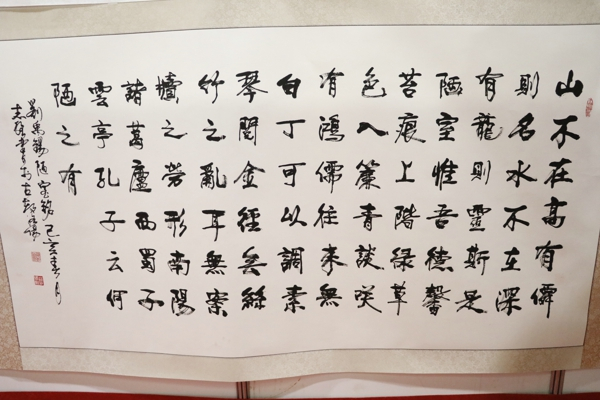 山不在高有僊
則名水不在深
有龍則靈斯是
陋室惟吾德馨
苔痕上階緑草
色入簾青談咲
有鴻儒往來無
白丁可以調素
琴閱金經無絲
竹之亂耳無案
牘之勞形南陽
諸葛廬西蜀子
雲亭孔子云何
陋之有
劉禹錫陋室銘己亥春月
書於古